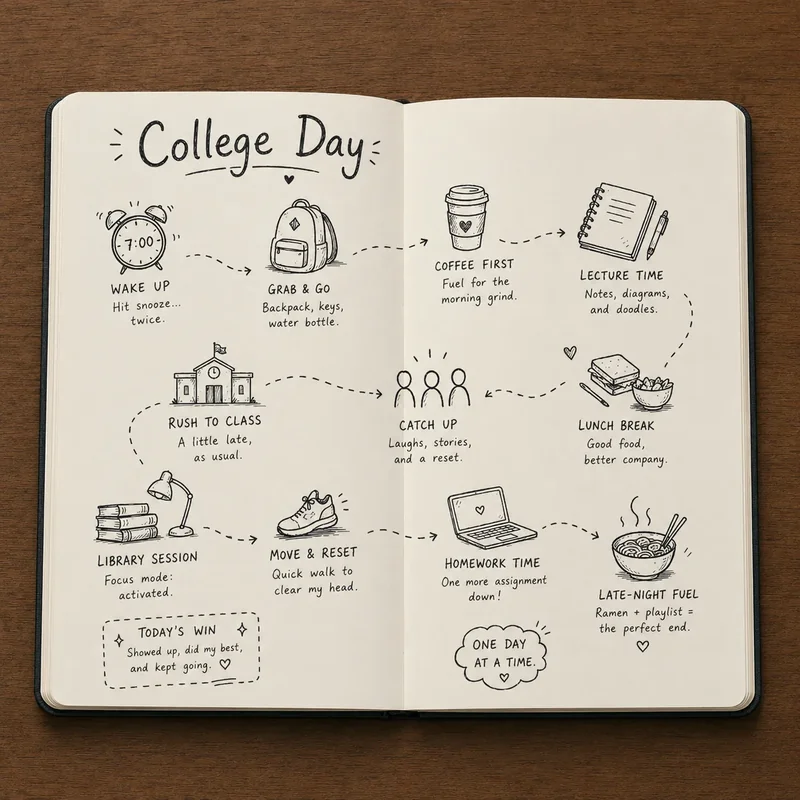 College Day
7:00
WAKE UP
Hit snooze...
twice.
GRAB & GO
Backpack, keys,
water bottle.
COFFEE FIRST
Fuel for the
morning grind.
LECTURE TIME
Notes, diagrams,
and doodles.
RUSH TO CLASS
A little late,
as usual.
CATCH UP
Laughs, stories,
and a reset.
LUNCH BREAK
Good food,
better company.
LIBRARY SESSION
Focus mode:
activated.
MOVE & RESET
Quick walk to
clear my head.
HOMEWORK TIME
One more assignment
down!
LATE-NIGHT FUEL
Ramen + playlist =
the perfect end.
TODAY'S WIN
Showed up, did my best,
and kept going.
ONE DAY
AT A TIME.